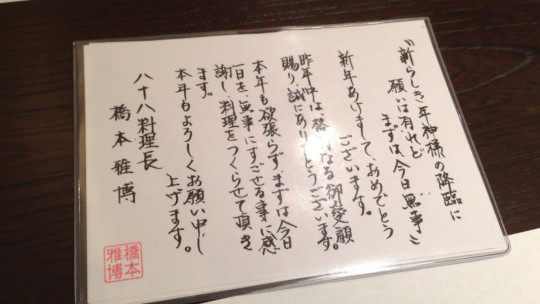 〝新らしき年神様の降臨に
願いは有れど
まずは今日無事〟
新年あけまして、おめでとう
ございます。
昨年中はなる御愛顧
賜り、誠にありがとうございます。
本年も欲張らず、まずは今日
一日を、無事にすごせる事に感
謝し、料理をつくらせて頂き
ます。
本年もよろしくお願い申し
上げます。
八十八料理長
橋本雅博
橋本
雅博